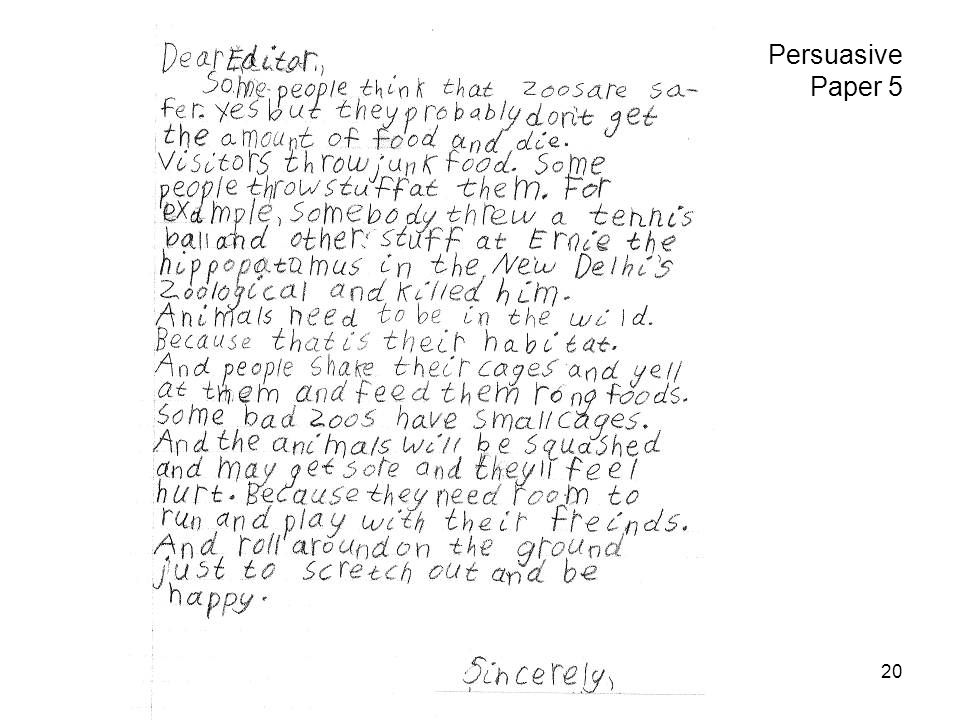 Persuasive
Paper 5
Dear Editor,
Some people think that zoos are sa-
fer. yes but they probably don't get
the amount of food and die.
Visitors throw junk food. Some
people throw stuff at them. For
example, somebody threw a tennis
ball and other stuff at Ernie the
hippopotamus in the New Delhi's
Zoological and killed him.
Animals need to be in the wild.
Because that is their habitat.
And people shake their cages and yell
at them and feed them rong foods.
Some bad zoos have small cages.
And the animals will be squashed
and may get sore and they'll feel
hurt. Because they need room to
run and play with their freinds.
And roll around on the ground
just to scretch out and be
happy.
Sincerely,
20